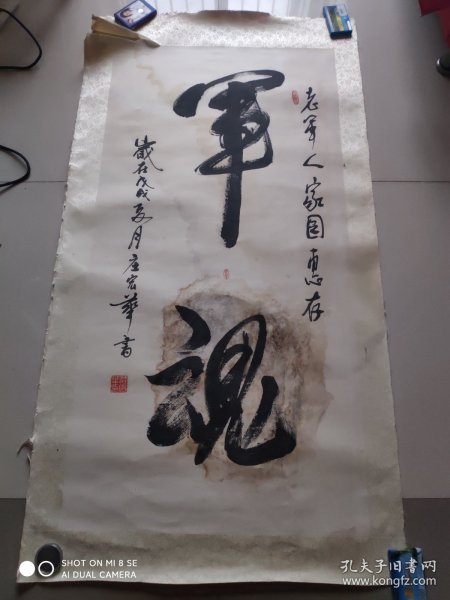 老军人家园惠存
軍魂
歲在戊戌夏月庄宏华書
SHOT ON MI 8 SE
AI DUAL CAMERA
孔夫子旧书网
www.kongfz.com